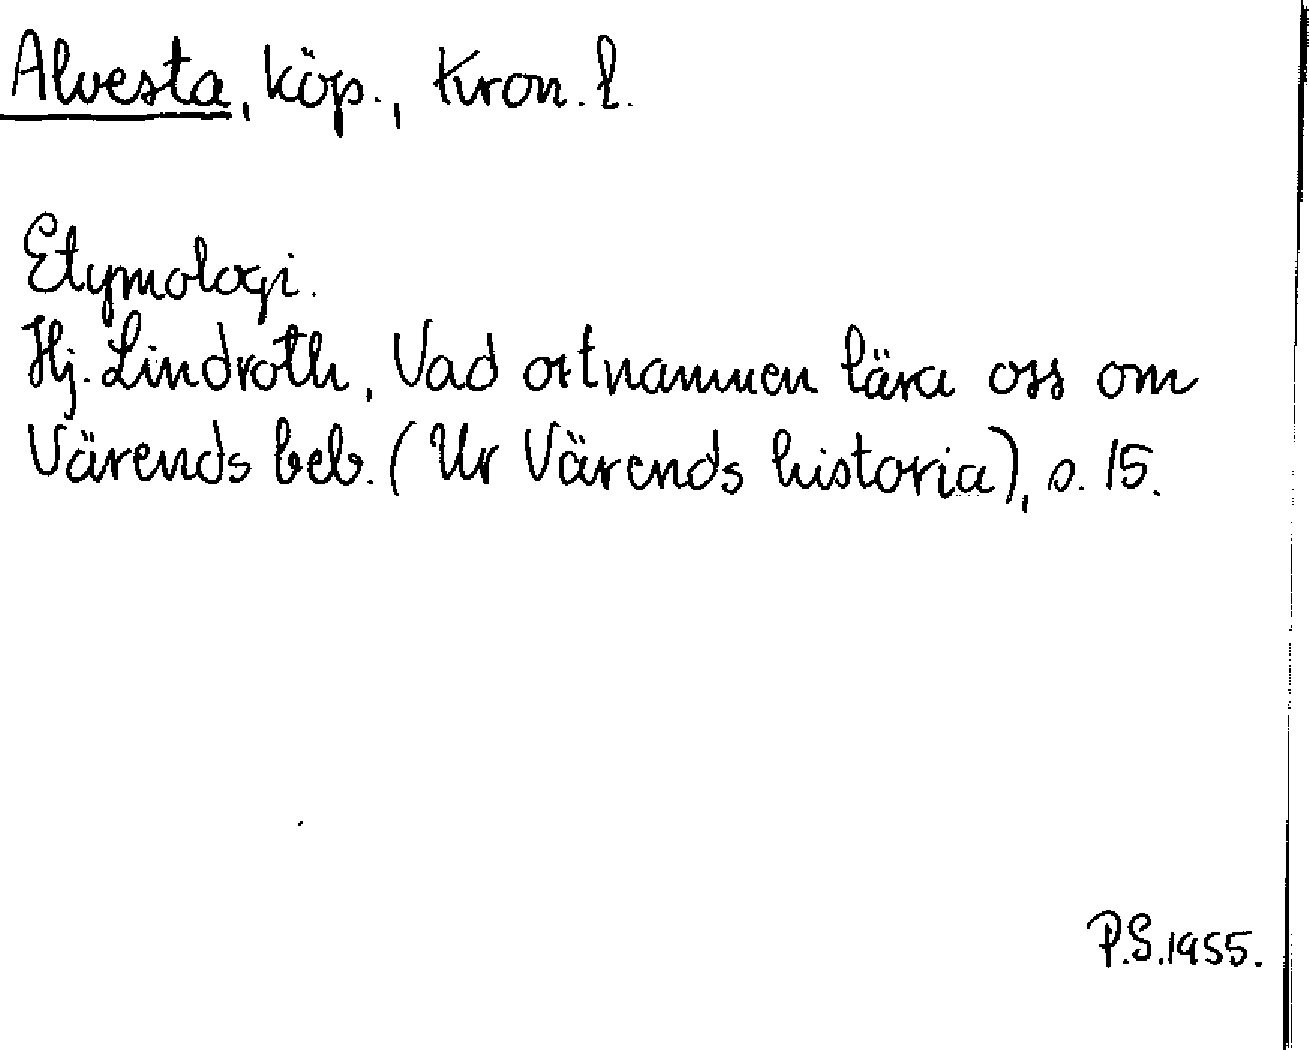 Alvesta, köp., Kron. l.
Etymologi.
Hj. Lindroth, Vad ortnamnen lära oss om
Värends beb. (Ur Värends historia), s. 15.
P.S. 1955.